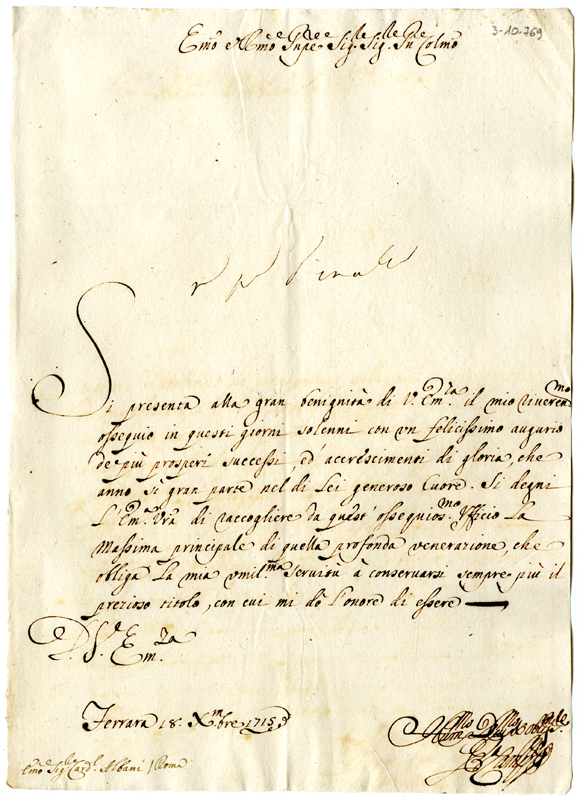 3-10-769
Em̃o e Rmo Inpe Sig. Sig. Pn Colmo
Si presenta alla gran benignità di V. Em.za il mio riveren.mo
ossequio in questi giorni solenni con un felicissimo augurio
de più prosperi successi, ed' accrescimenti di gloria, che
anno si gran parte nel di Lei generoso Cuore. Si degni
l'Em.a Vrã di raccogliere da quest' ossequios.mo Uffizio la
Massima principale di quella profonda venerazione, che
obliga la mia umil.ma servitù à conservarsi sempre più il
prezioso titolo, con cui mi dò l'onore di essere
D. V. Em.za
Ferrara 18. Xmbre 1715
Em̃o Sig. Card. Albani / Roma